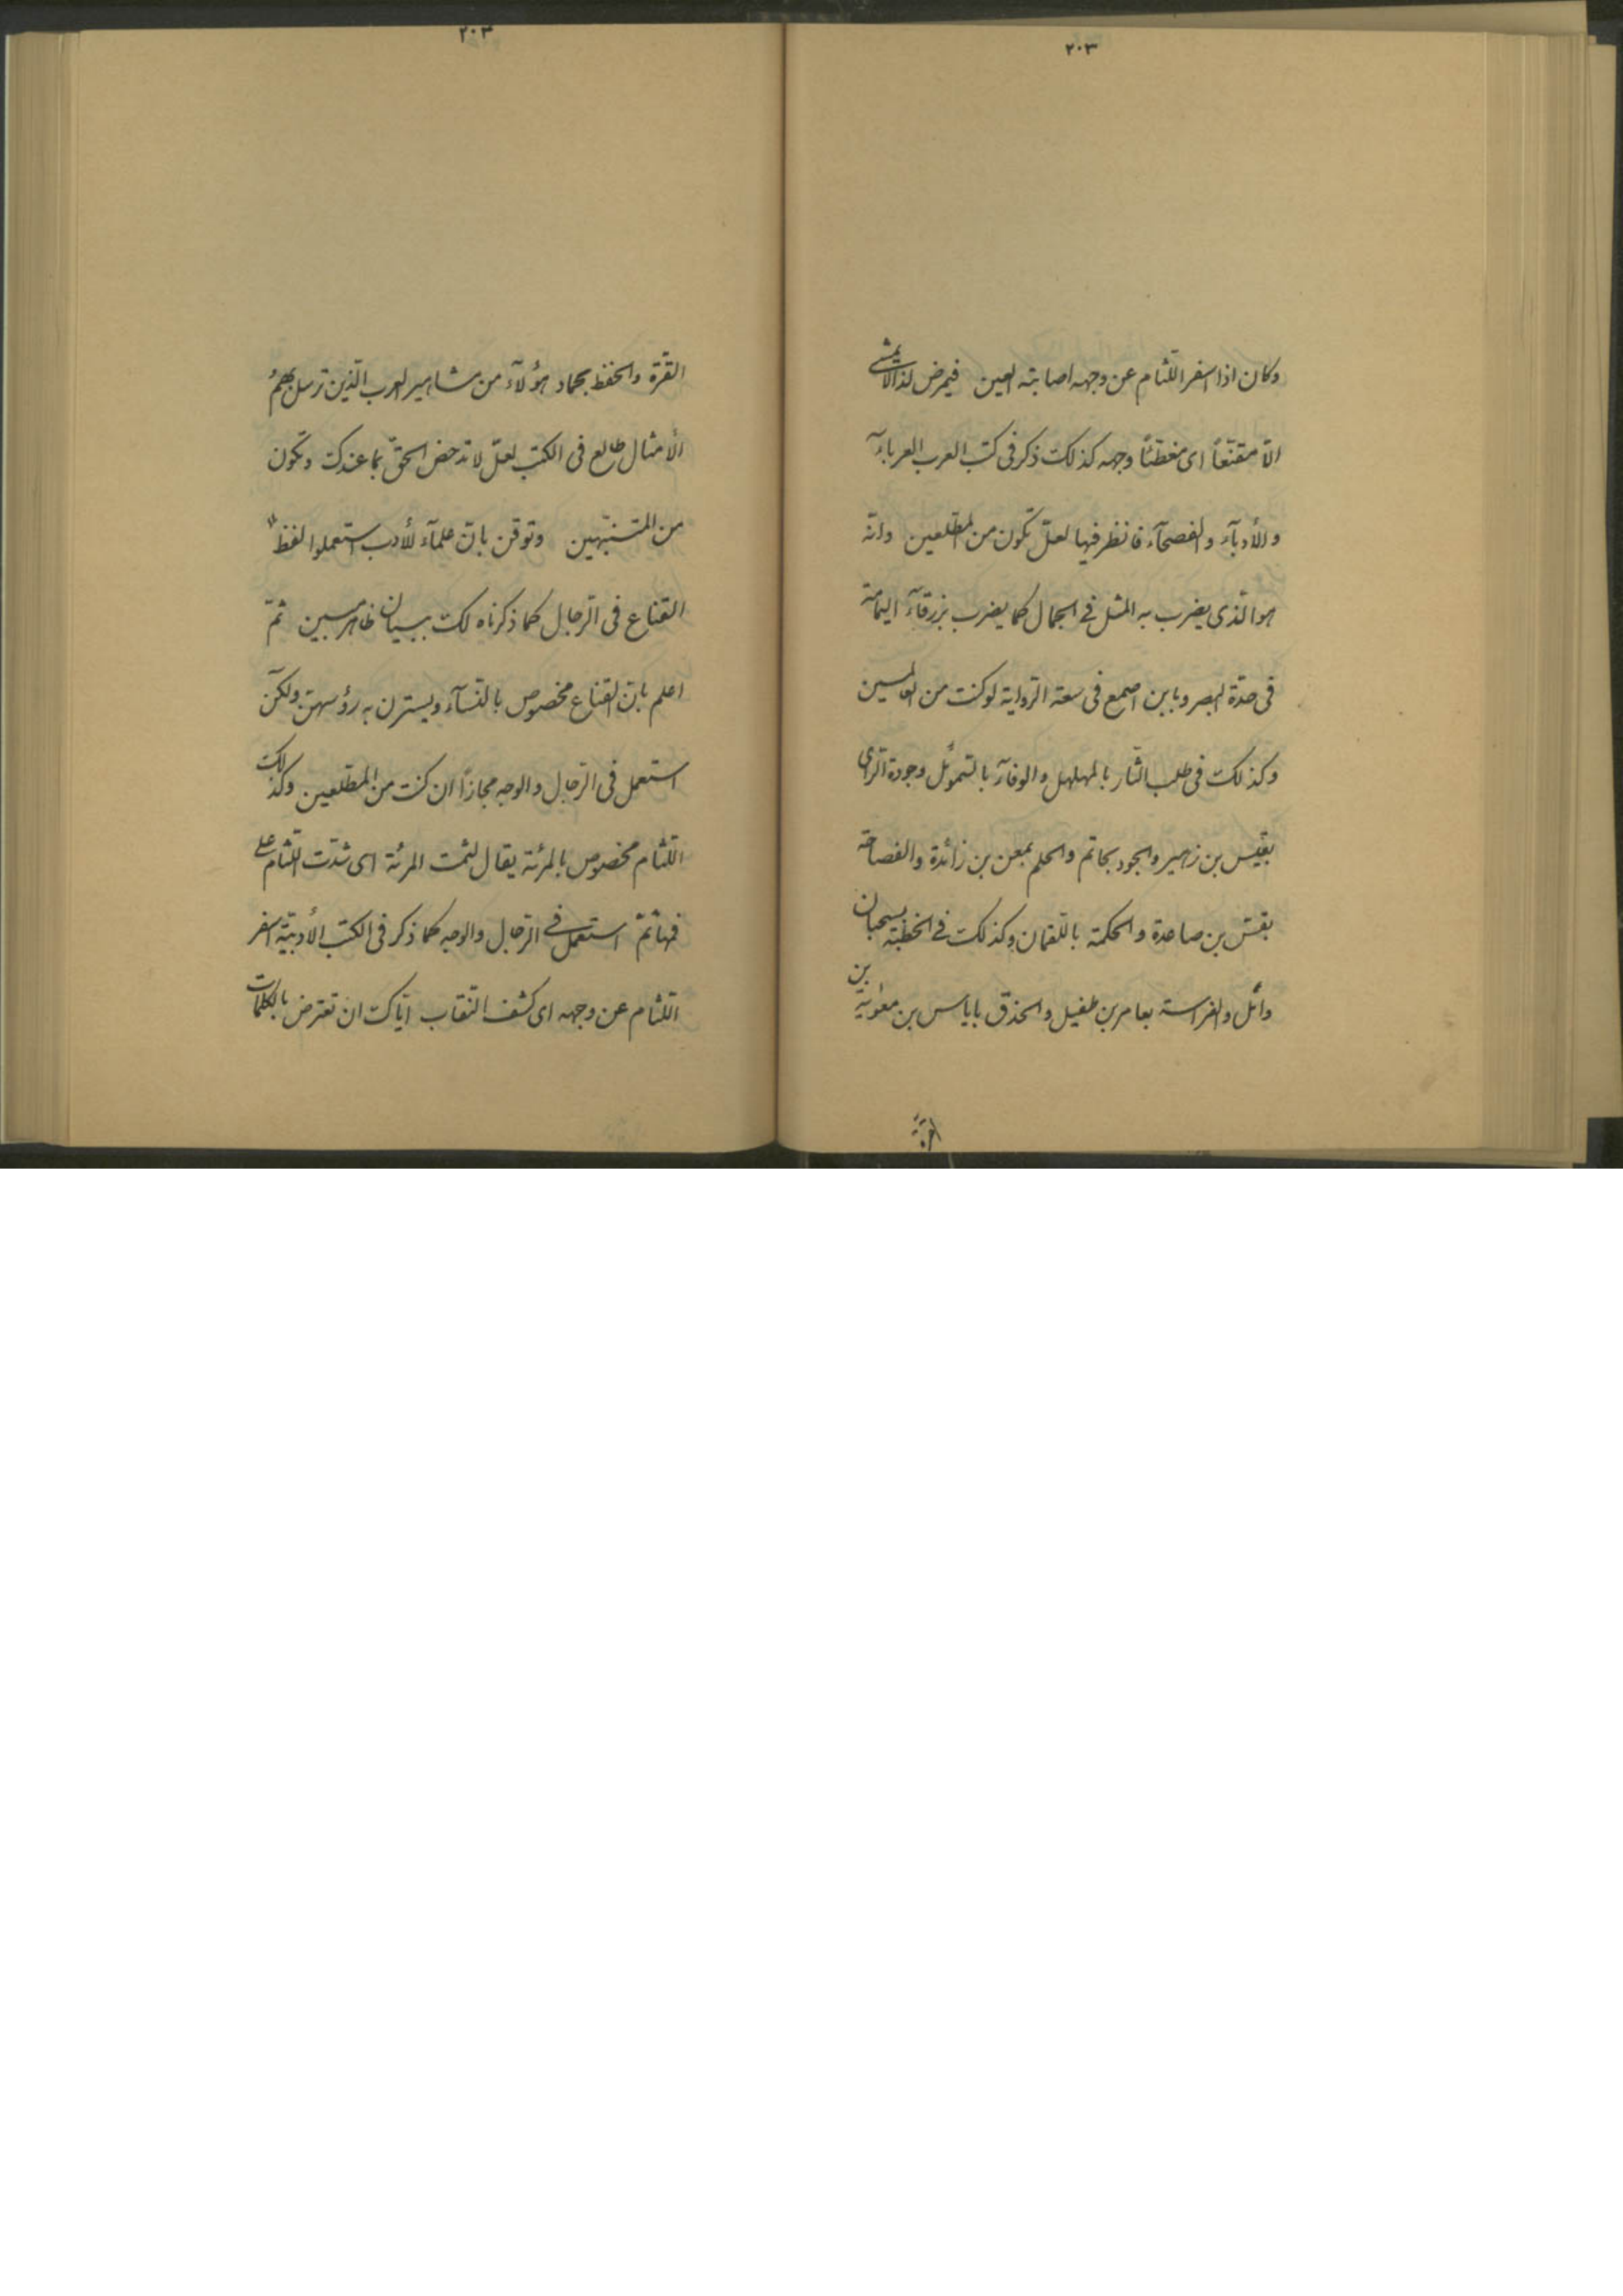 ٢٠٣
وكان اذا اسفر اللّثام عن وجهه اصابته العين فيمرض لذا لا يمشى
الّا مقنّعاً اى مغطّيًا وجهه كذلك ذكر فى كتب العرب العرباء
والأدبآء والفصحآء فانظر فيها لعلّ تكون من المطّلعين وانّه
هو الّذى يضرب به المثل فى الجمال كما يضرب بزرقآء اليمامة
فى حدّة البصر وبابن اصمع فى سعة الرّواية لو كنت من العالمين
وكذلك فى طلب الثّار بالمهلهل والوفآء بالسّموئل وجودة الرّاى
بقيس بن زهير والجود بحاتم والحلم بمعن بن زائدة والفصاحة
بقسّ بن صاعدة والحكمة باللّقمان وكذلك فى الخطبة بسحبان
وائل والفراسة بعامر بن طفيل والحذق باياس بن معوية بن
القرّة
٢٠٣
القرّة والحفظ بحمّاد هؤلآء من مشاهير العرب الّذين ترسل بهم
الأمثال طالع فى الكتب لعلّ لا تدحض الحقّ بما عندك وتكون
من المتنبّهين وتوقن بانّ علمآء الأدب استعملوا لفظ
القناع فى الرّجال كما ذكرناه لك ببيان ظاهر مبين ثمّ
اعلم بانّ القناع مخصوص بالنّسآء ويسترن به رؤسهنّ ولكن
استعمل فى الرّجال والوجه مجازاً ان كنت من المطّلعين وكذلك
اللّثام مخصوص بالمرئة يقال لثمت المرئة اى شدّت اللّثام على
فمها ثمّ استعمل فى الرّجال والوجه كما ذكر فى الكتب الأدبيّة اسفر
اللّثام عن وجهه اى كشف النّقاب ايّاك ان تعترض بالكلمات